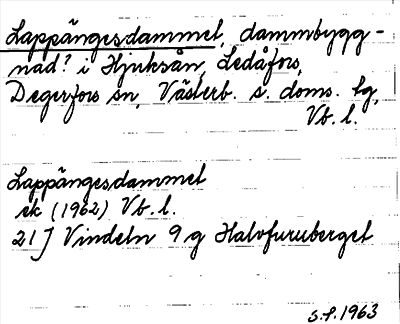 Lappängesdammet, dammbygg-
nad? i Hjuksån, Ledåfors,
Degerfors sn, Västerb. s. doms. lg,
Vb. l.
Lappängesdammet
ek (1962) Vb. l.
21J Vindeln 9 g Halvfuruberget
S.f. 1963